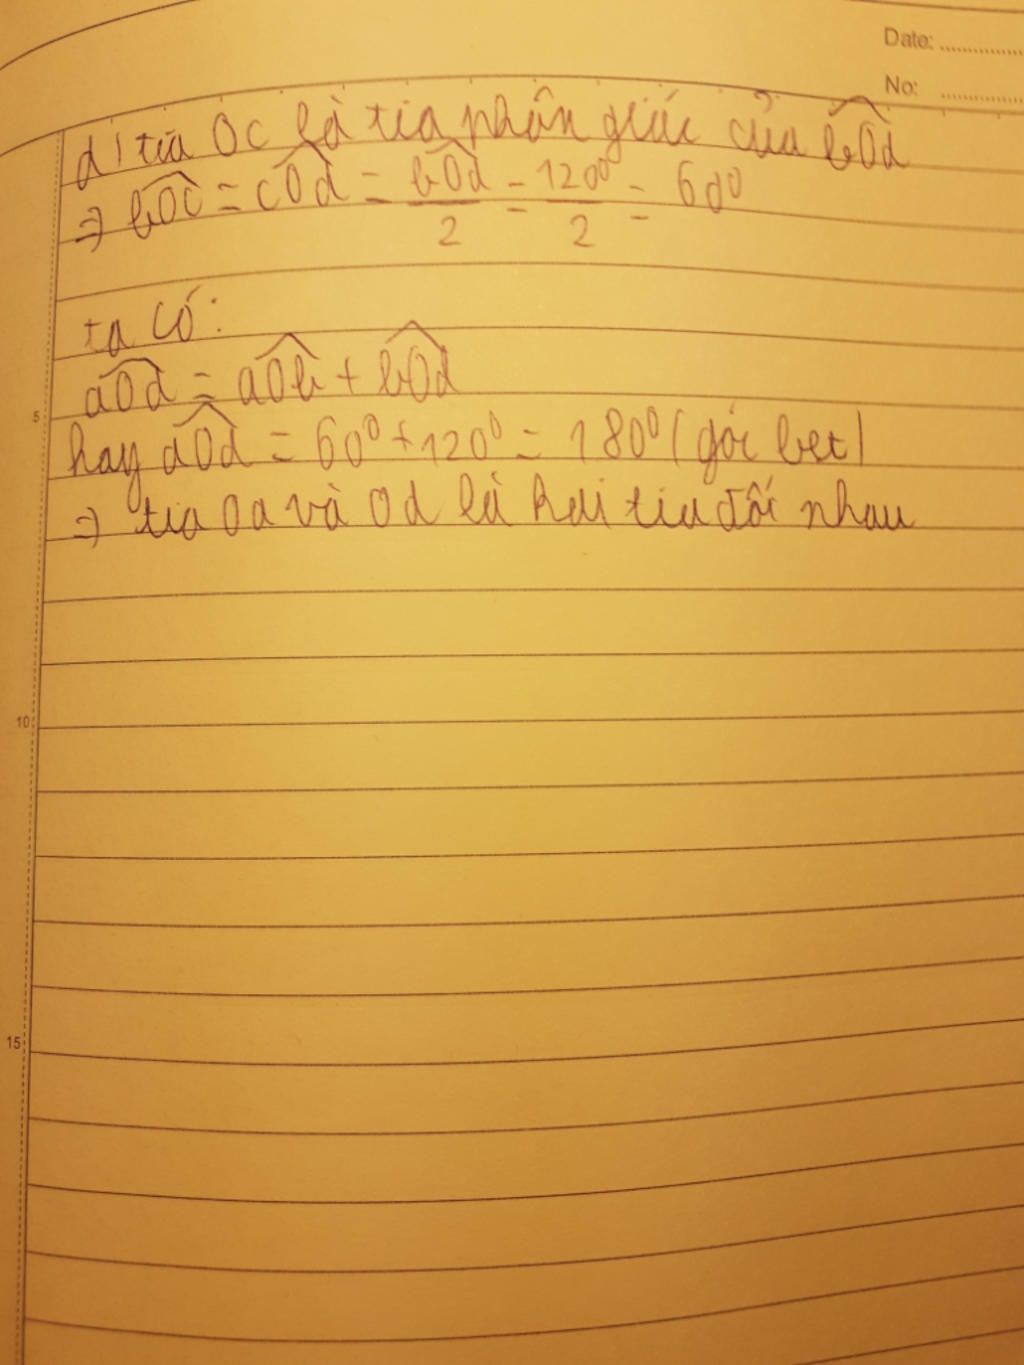 Date: ................
No: ................
d) tia Oc là tia phân giác của bOd
=> bOc = cOd = bOd/2 = 120⁰/2 = 60⁰
ta có:
aOd = aOb + bOd
5
hay aOd = 60⁰ + 120⁰ = 180⁰ (góc bet)
=> tia Oa và Od là hai tia đối nhau
10
15